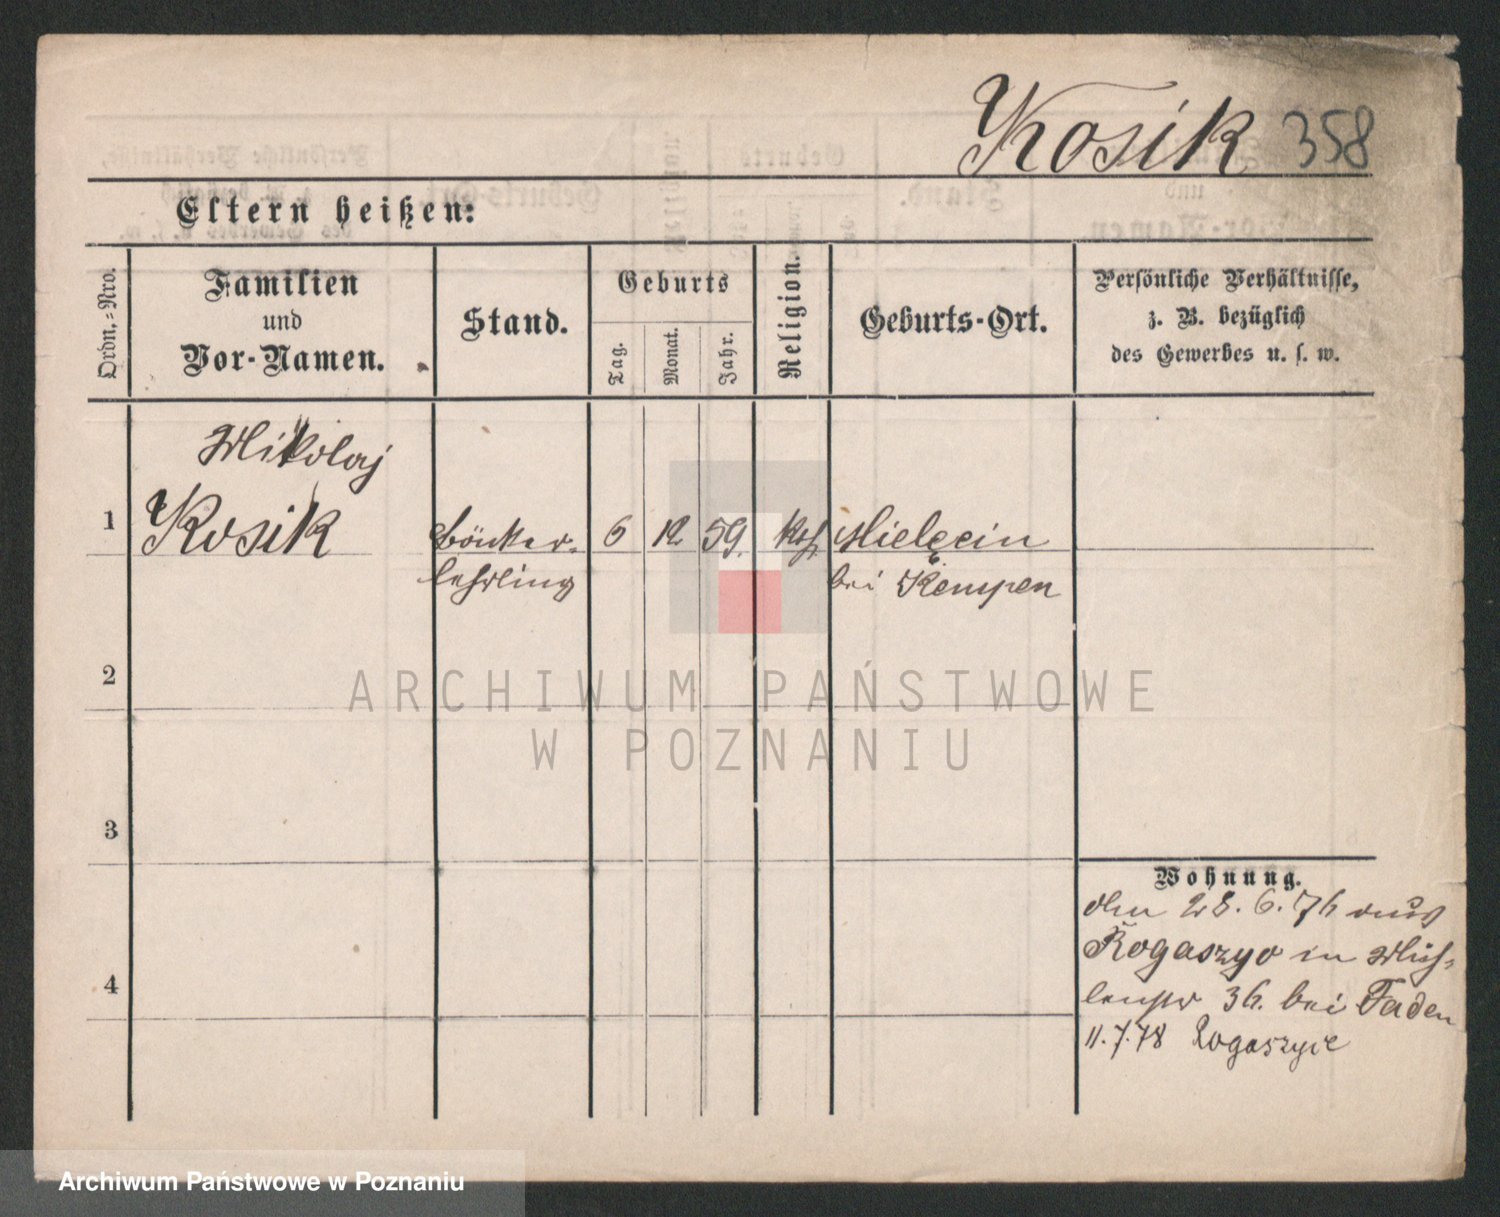 Kosik 358
Eltern heißen:
Ordn.-Nro.
Familien
und
Vor-Namen.
Stand.
Geburts
Tag.
Monat.
Jahr.
Religion.
Geburts-Ort.
Persönliche Verhältnisse,
z. B. bezüglich
des Gewerbes u. s. w.
Mikolaj
1 Kosik
6 12 59. kth Mielęcin
lehrling
bei Kempen
2
3
4
Wohnung.
den 28. 6. 76 aus
Rogaszyc in Müh-
lenstr 36. bei Faden
11.7.78 Rogaszyce
ARCHIWUM PAŃSTWOWE
W POZNANIU
Archiwum Państwowe w Poznaniu